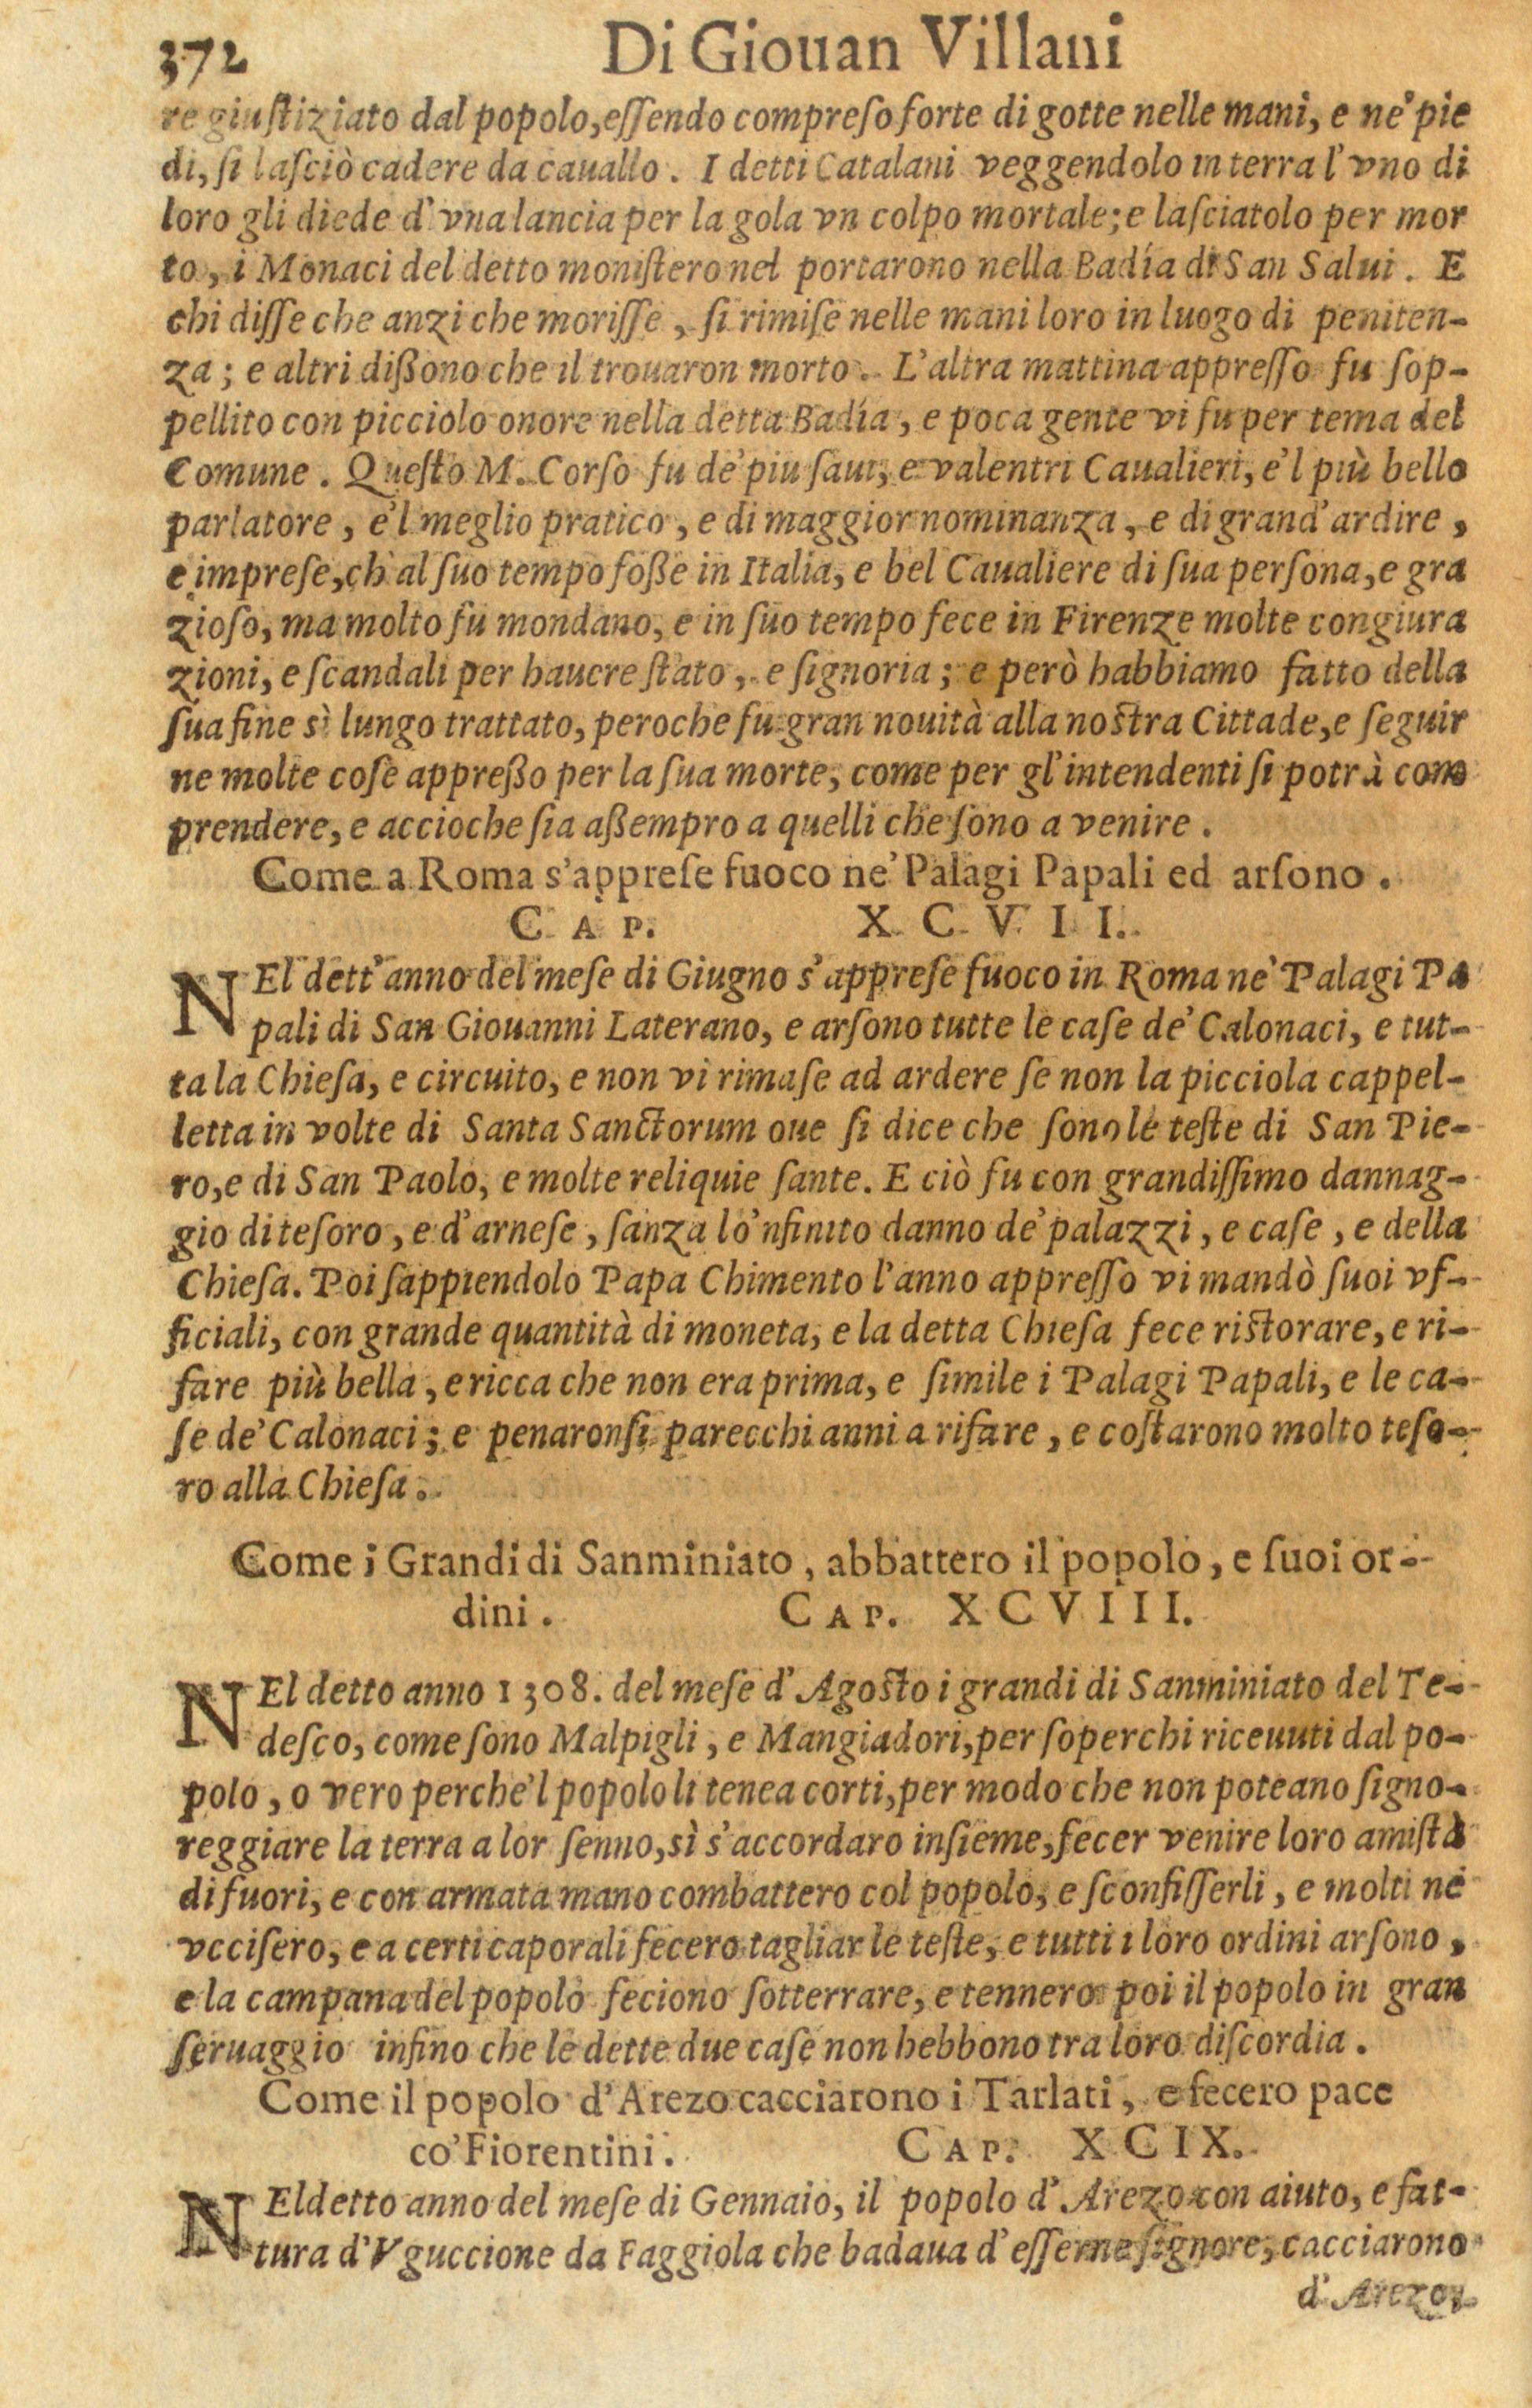 372 Di Giouan Villani
re giuſtiziato dal popolo, eſſendo compreſo forte di gotte nelle mani, e ne' pie
di, ſi laſciò cadere da cauallo. I detti Catalani veggendolo in terra l'vno di
loro gli diede d'vna lancia per la gola vn colpo mortale; e laſciatolo per mor
to, i Monaci del detto moniſtero nel portarono nella Badía di San Salui. E
chi diſſe che anzi che moriſſe, ſi rimiſe nelle mani loro in luogo di peniten-
za; e altri dißono che il trouaron morto. L'altra mattina appreſſo fu ſop-
pellito con picciolo onore nella detta Badía, e poca gente vi fu per tema del
Comune. Queſto M. Corſo fu de' piu ſaui, e valentri Caualieri, e'l più bello
parlatore, e'l meglio pratico, e di maggior nominanza, e di grand'ardire,
e impreſe, ch'al ſuo tempo foße in Italia, e bel Caualiere di ſua perſona, e gra
zioſo, ma molto fu mondano, e in ſuo tempo fece in Firenze molte congiura
zioni, e ſcandali per hauere ſtato, e ſignoria; e però habbiamo fatto della
ſua fine sì lungo trattato, peroche fu gran nouità alla noſtra Cittade, e ſeguir
ne molte coſe appreßo per la ſua morte, come per gl'intendenti ſi potrà com
prendere, e accioche ſia aßempro a quelli che ſono a venire.
Come a Roma s'appreſe fuoco ne' Palagi Papali ed arſono.
CAP. XCVII.
NEl dett'anno del meſe di Giugno s'appreſe fuoco in Roma ne' Palagi Pa
pali di San Giouanni Laterano, e arſono tutte le caſe de' Calonaci, e tut-
ta la Chieſa, e circuito, e non vi rimaſe ad ardere ſe non la picciola cappel-
letta in volte di Santa Sanctorum oue ſi dice che ſono le teſte di San Pie-
ro, e di San Paolo, e molte reliquie ſante. E ciò fu con grandiſſimo dannag-
gio di teſoro, e d'arneſe, ſanza lo'nfinito danno de' palazzi, e caſe, e della
Chieſa. Poi ſappiendolo Papa Chimento l'anno appreſſo vi mandò ſuoi vf-
ficiali, con grande quantità di moneta, e la detta Chieſa fece riſtorare, e ri-
fare più bella, e ricca che non era prima, e ſimile i Palagi Papali, e le ca-
ſe de' Calonaci; e penaronſi parecchi anni a rifare, e coſtarono molto teſo-
ro alla Chieſa.
Come i Grandi di Sanminiato, abbattero il popolo, e ſuoi or-
dini. CAP. XCVIII.
NEl detto anno 1308. del meſe d'Agoſto i grandi di Sanminiato del Te-
deſco, come ſono Malpigli, e Mangiadori, per ſoperchi riceuuti dal po-
polo, o vero perche'l popolo li tenea corti, per modo che non poteano ſigno-
reggiare la terra a lor ſenno, sì s'accordaro inſieme, fecer venire loro amiſtà
di fuori, e con armata mano combattero col popolo, e ſconfiſſerli, e molti ne
vcciſero, e a certi caporali fecero tagliar le teſte, e tutti i loro ordini arſono,
e la campana del popolo feciono ſotterrare, e tennero poi il popolo in gran
ſeruaggio infino che le dette due caſe non hebbono tra loro diſcordia.
Come il popolo d'Arezo cacciarono i Tarlati, e fecero pace
co'Fiorentini. CAP. XCIX.
NEl detto anno del meſe di Gennaio, il popolo d'Arezo con aiuto, e fat-
tura d'Vguccione da Faggiola che badaua d'eſſerne ſignore, cacciarono
d'Arezo,